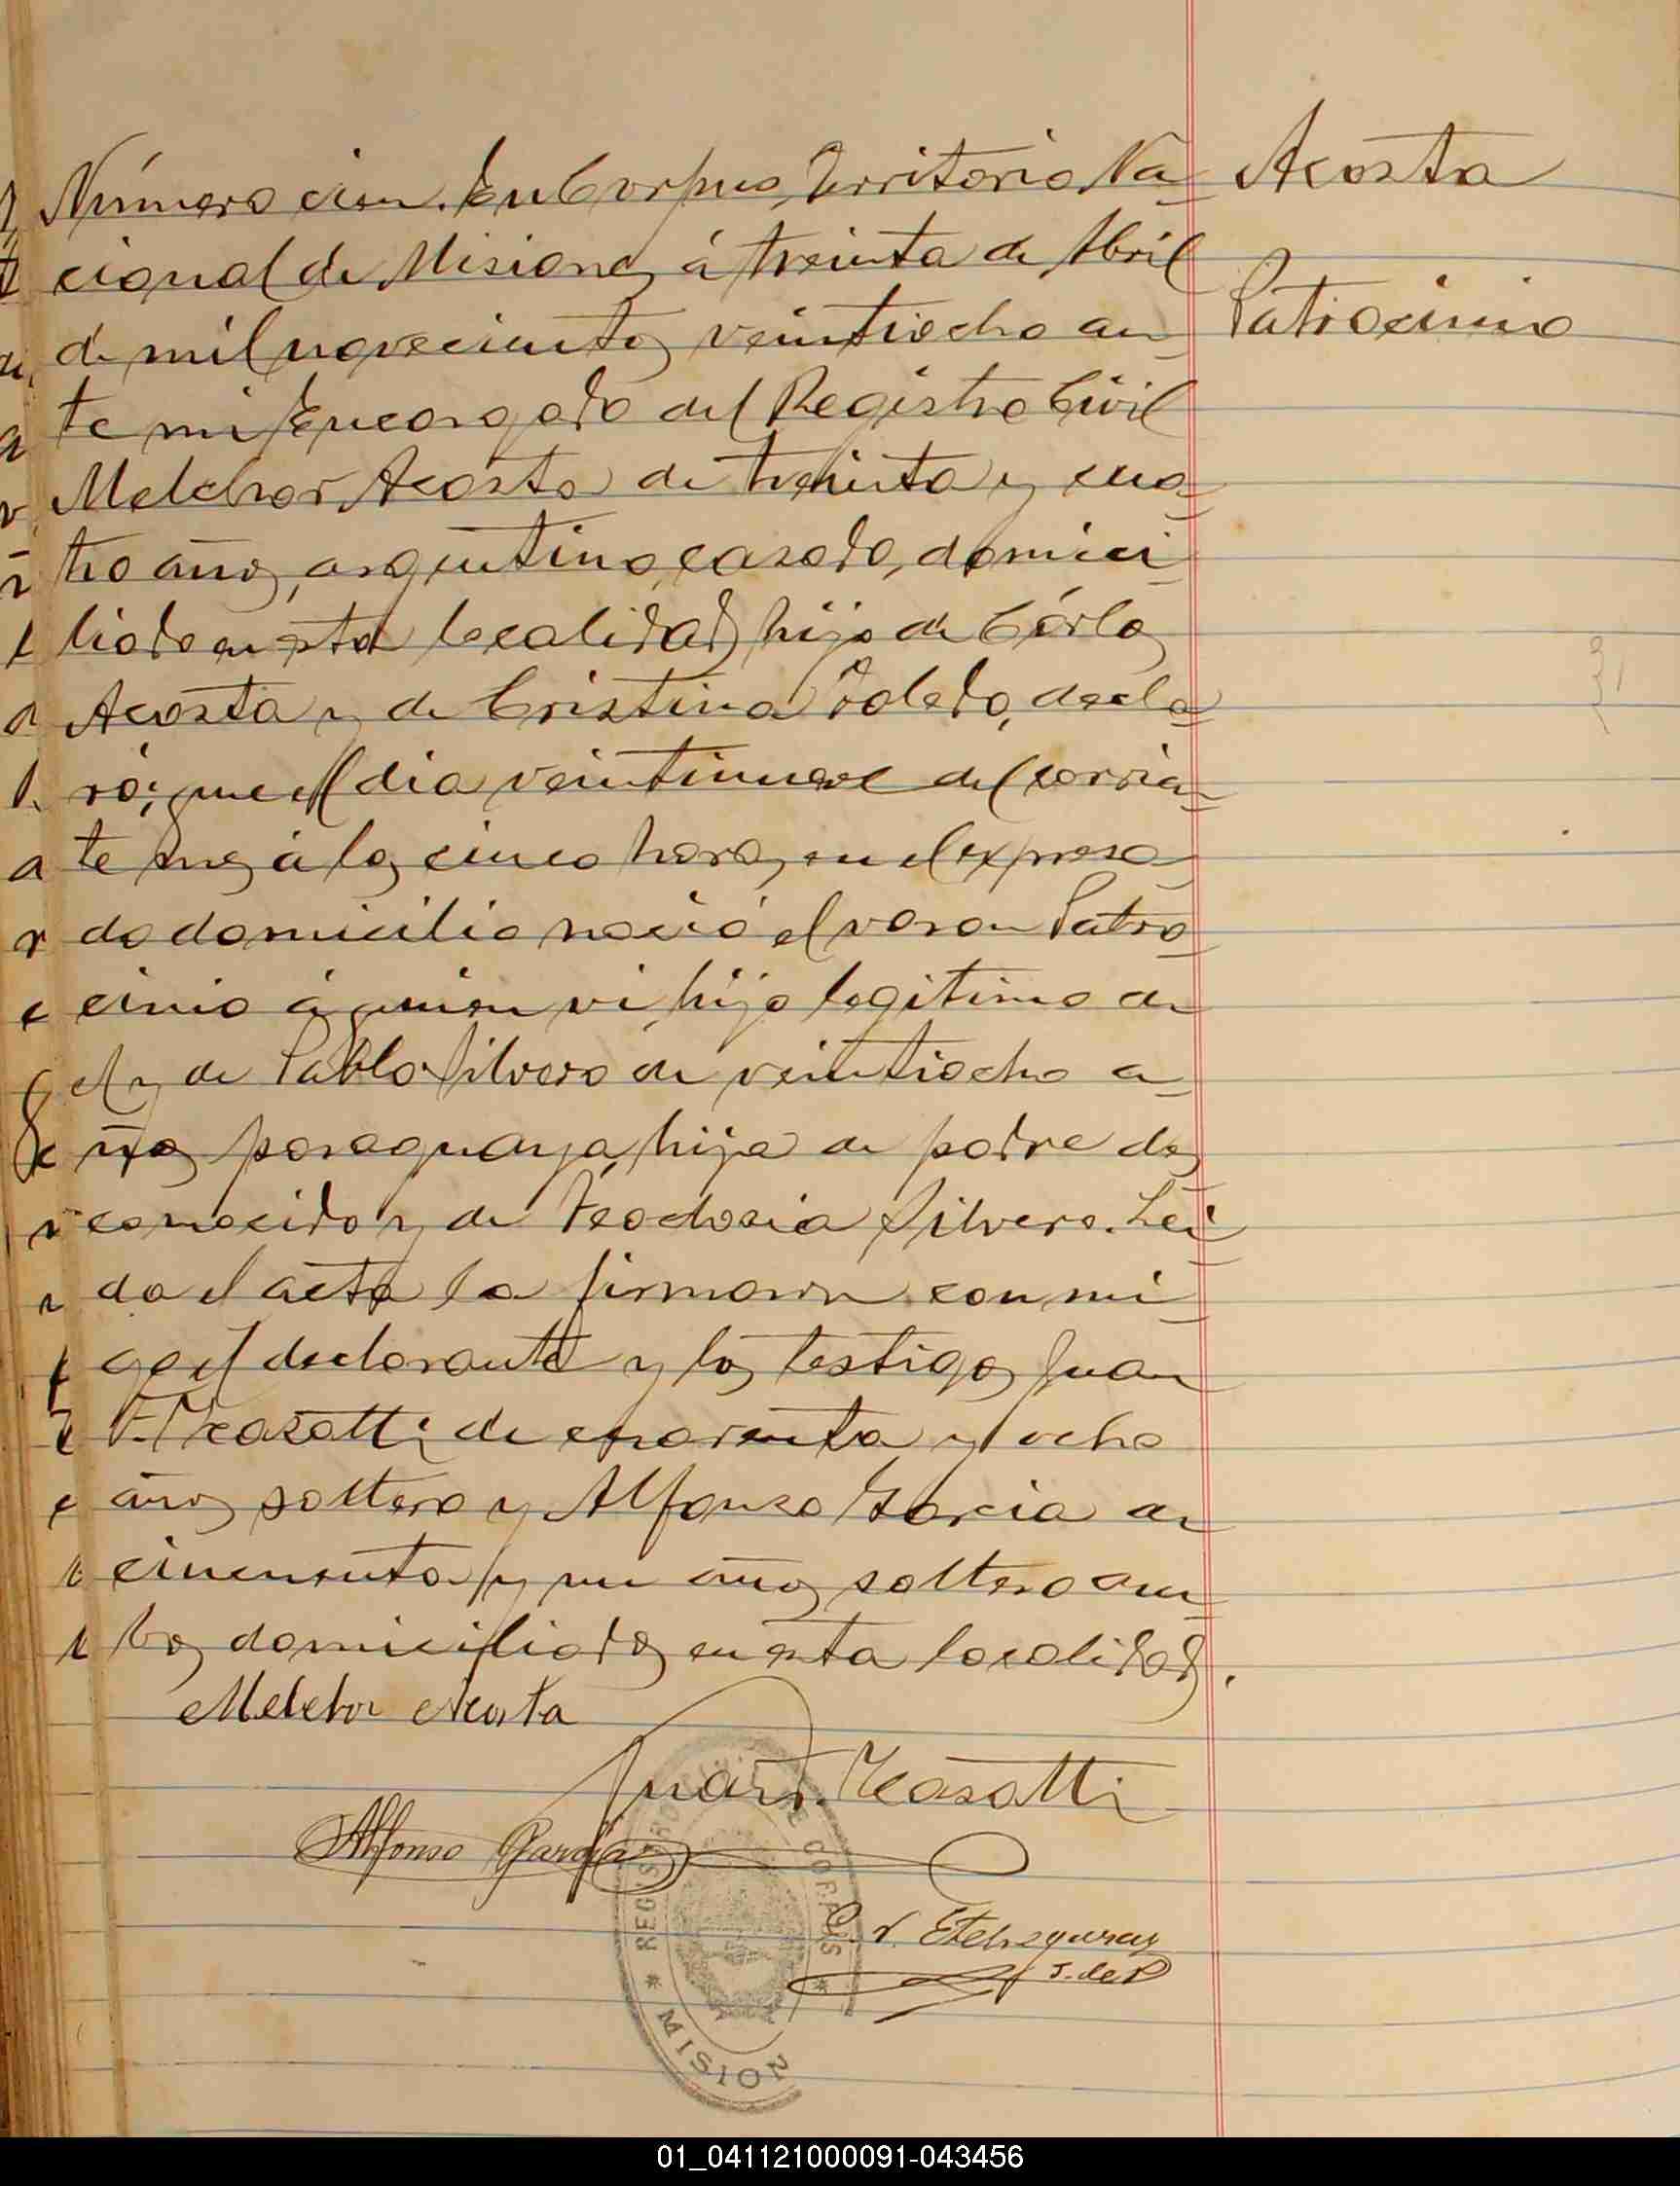 Acosta
Patrocinio
Número cien. En Corpus, Territorio Na-
cional de Misiones, á treinta de Abril
de mil novecientos veintiocho an-
te mi Encargado del Registro Civil
Melchor Acosta de treinta y cua-
tro años, argentino, casado, domici-
liado en esta localidad, hijo de Cárlos
Acosta y de Cristina Toledo, decla-
ró: que el dia veintinueve del corrien-
te mes á las cinco horas, en el expresa-
do domicilio nació el varon Patro-
cinio á quien vi, hijo legitimo de
el y de Pabla Silvero de veintiocho a-
ños paraguaya, hija de padre des-
conocido y de Teodosia Silvero. Lei-
da el acta la firmaron conmi-
go el declarante y los testigos Juan
F. Casatti de cuarenta y ocho
años soltero y Alfonso Garcia de
cincuenta y un años soltero am-
bos domiciliados en esta localidad.
Melchor Acosta
Juan F. Casatti
Alfonso Garcia
Etchegaray
J. de P
REGISTRO CIVIL DE CORPUS
* MISIONES *
01_041121000091-043456